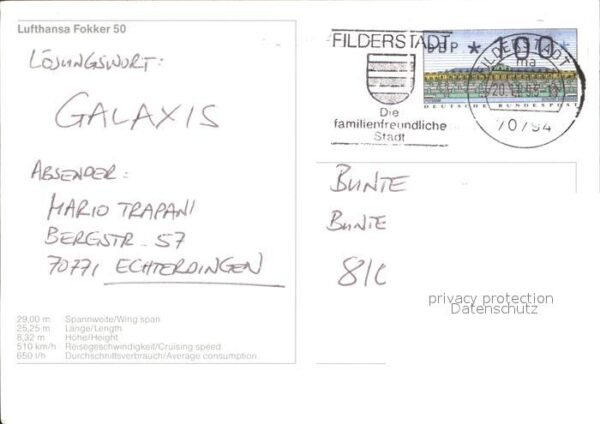 Lufthansa Fokker 50
LÖSUNGSWORT:
GALAXIS
ABSENDER:
MARIO TRAPANI
BERGSTR. 57
70771 ECHTERDINGEN
29,00 m Spannweite/Wing span
25,25 m Länge/Length
8,32 m Höhe/Height
510 km/h Reisegeschwindigkeit/Cruising speed
650 l/h Durchschnittsverbrauch/Average consumption
FILDERSTADT
Die
familienfreundliche
Stadt
DBP * 100
DEUTSCHE BUNDESPOST
FILDERSTADT
ma
70794
BUNTE
BUNTE
privacy protection
Datenschutz